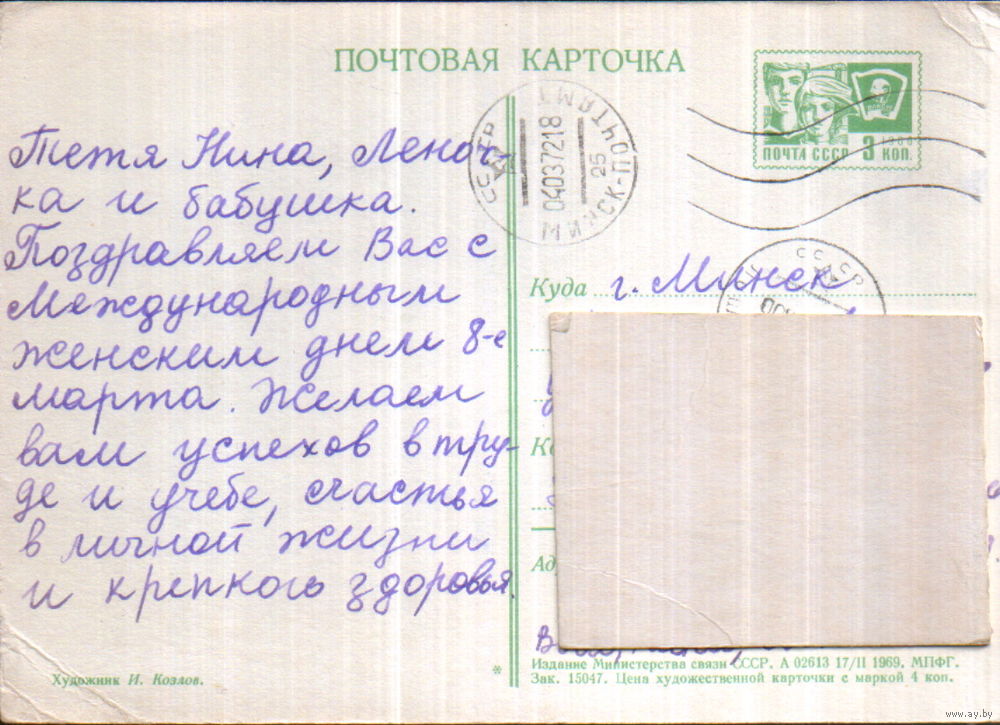 ПОЧТОВАЯ КАРТОЧКА
Тетя Нина, Леноч-
ка и бабушка.
Поздравляем Вас с
Международным
женским днем 8-е
марта. Желаем
вам успехов в тру-
де и учебе, счастья
в личной жизни
и крепкого здоровья.
Художник И. Козлов.
СССР
МИНСК-ПОЧТАМТ
04037218
25
ПОЧТА СССР 3 КОП.
1966
СССР
Куда г. Минск
Издание Министерства связи СССР. А 02613 17/II 1969. МПФГ.
Зак. 15047. Цена художественной карточки с маркой 4 коп.
www.ay.by